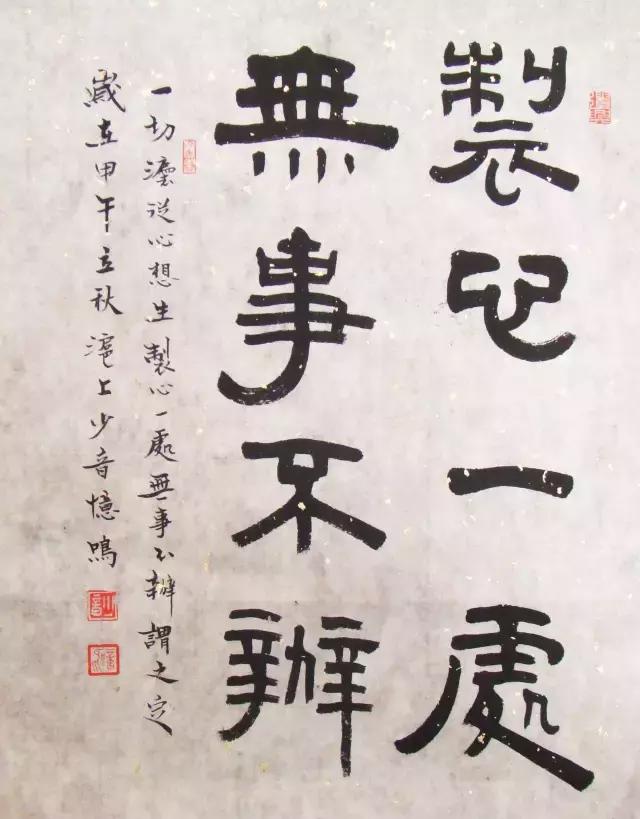 製心一處
無事不辦
一切灋從心想生製心一處無事不辦謂之定
歲在甲午立秋滬上少音憶鳴